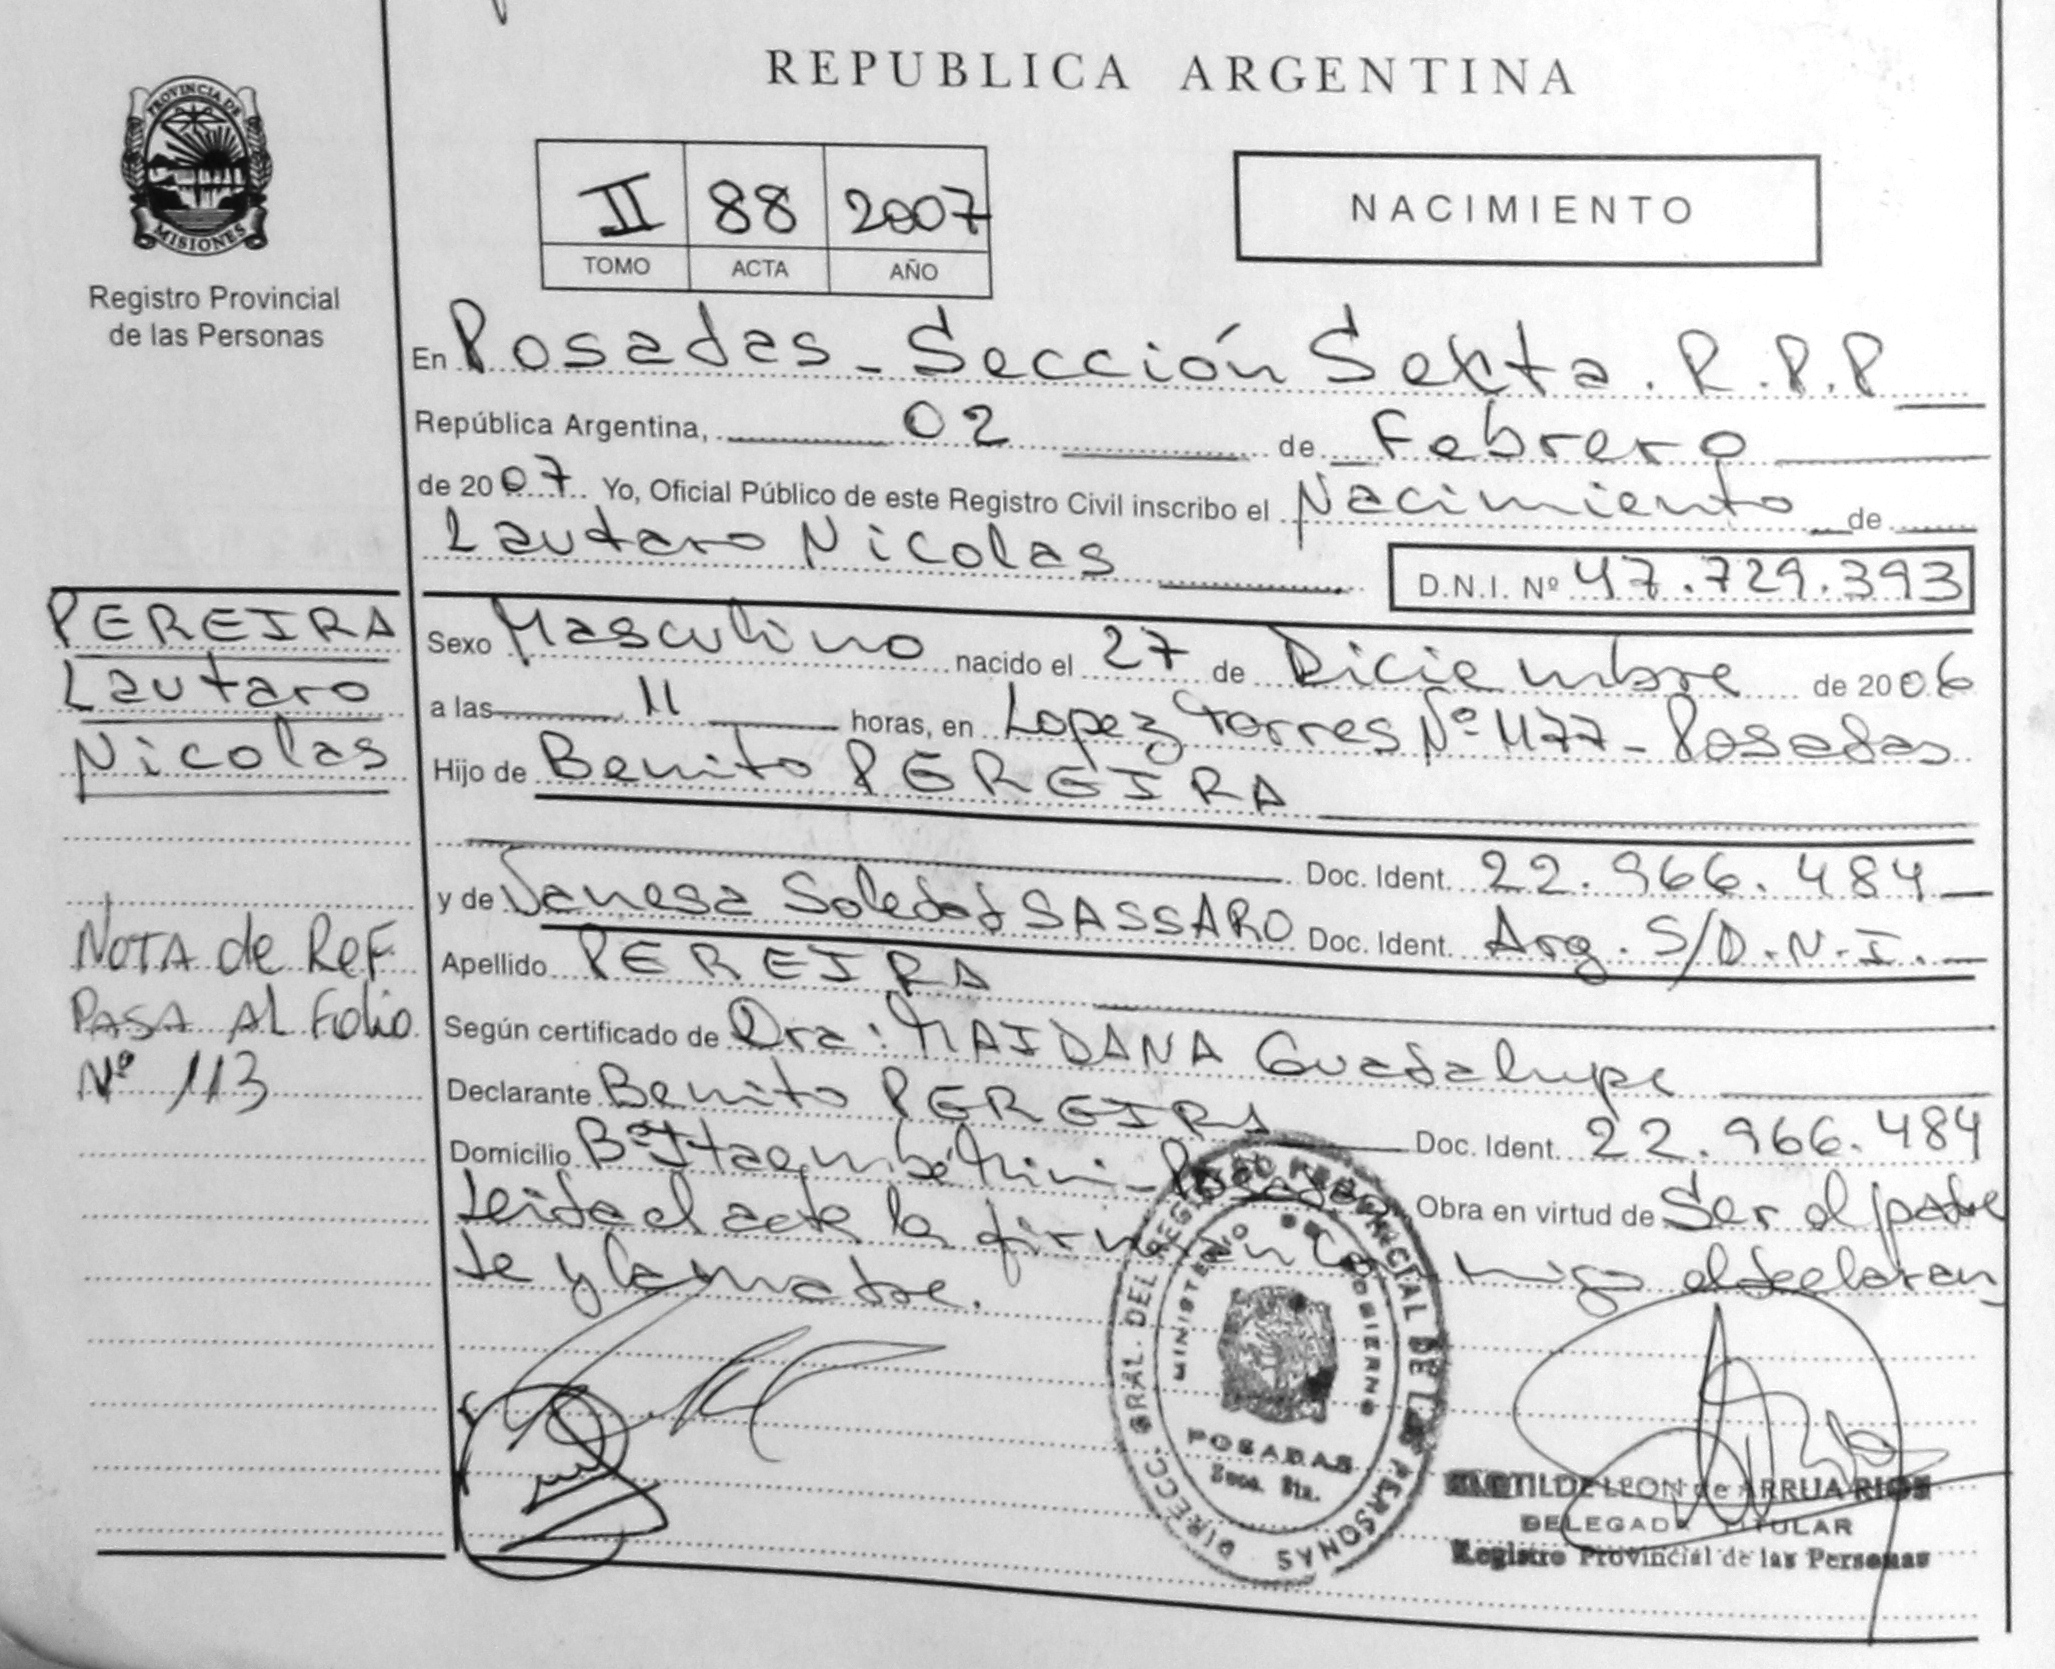 REPUBLICA ARGENTINA
PROVINCIA DE
MISIONES
Registro Provincial
de las Personas
II 88 2007
TOMO ACTA AÑO
NACIMIENTO
En Posadas - Sección Sexta. R.P.P
República Argentina, 02 de Febrero
de 2007 Yo, Oficial Público de este Registro Civil inscribo el Nacimiento de
Lautaro Nicolas
D.N.I. Nº 47.729.393
PEREIRA
Lautaro
Nicolas
Sexo Masculino nacido el 27 de Diciembre de 2006
a las 11 horas, en Lopez Torres Nº 1177 - Posadas
Hijo de Benito PEREIRA
Doc. Ident. 22.966.484
y de Vanesa Soledad SASSARO Doc. Ident. Arg. S/D.N.I.
Apellido PEREIRA
Según certificado de Dra: MAIDANA Guadalupe
Declarante Benito PEREIRA
Doc. Ident. 22.966.484
Domicilio Bº Itaembé Mini - Posadas
Obra en virtud de Ser el padre
Leida el acta la firman conmigo el declaran
te y la madre.
NOTA de Ref
PASA AL Folio
Nº 113
DIRECC. GRAL. DEL REGISTRO PROVINCIAL DE LAS PERSONAS
MINISTERIO DE GOBIERNO
POSADAS
Secc. 6ta.
CLOTILDE LEON de ARRUA RIOS
DELEGADA TITULAR
Registro Provincial de las Personas